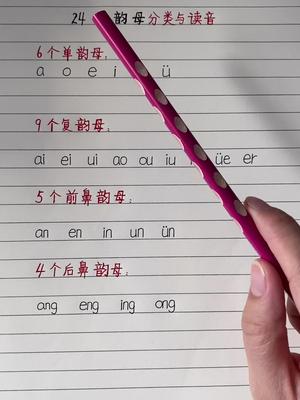 24 韵母分类与读音
6个单韵母:
a o e i ü
9个复韵母:
ai ei ui ao ou iu üe er
5个前鼻韵母:
an en in un ün
4个后鼻韵母:
ang eng ing ong